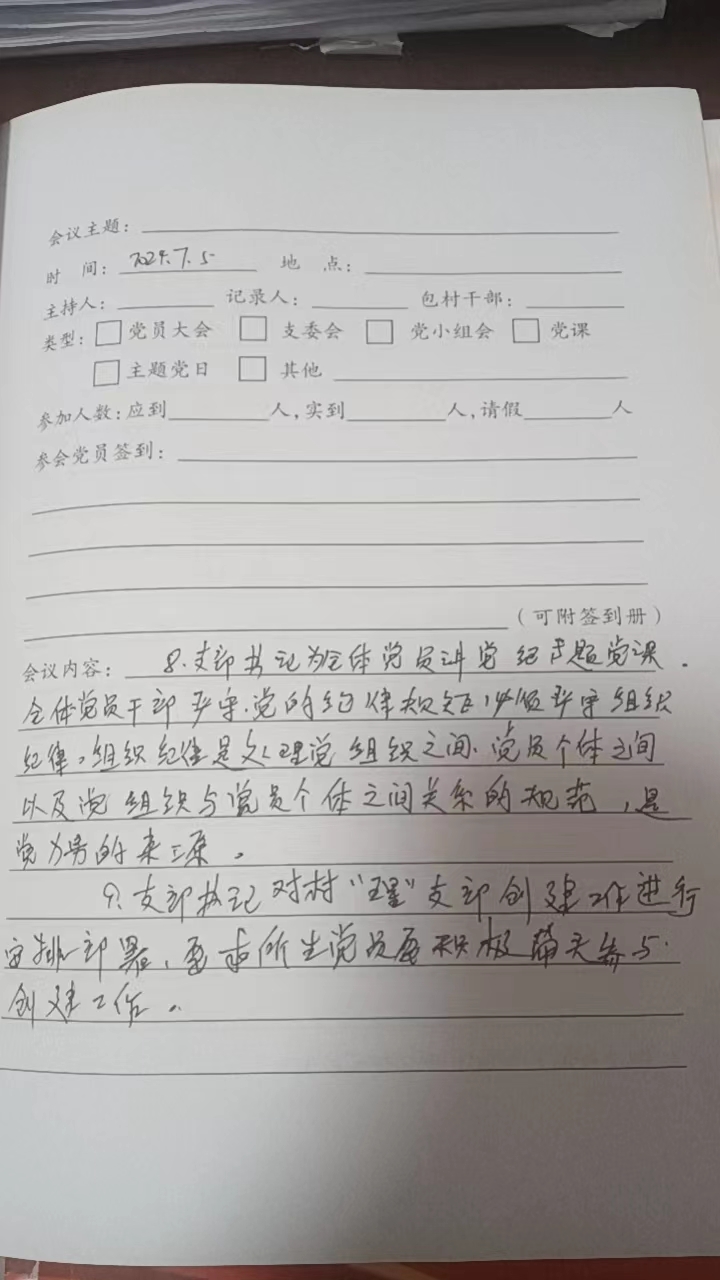 会议主题：
时 间：2024.7.5 地 点：
主持人： 记录人： 包村干部：
类型：□党员大会 □支委会 □党小组会 □党课
□主题党日 □其他
参加人数：应到 人，实到 人，请假 人
参会党员签到：
（可附签到册）
会议内容： 8.支部书记为全体党员讲党纪专题党课．
全体党员干部严守党的纪律规矩，必须严守组织
纪律。组织纪律是处理党组织之间、党员个体之间
以及党组织与党员个体之间关系的规范，是
党力的来源。
9、支部书记对村“五星”支部创建工作进行
安排部署，要求所党员要积极带头参与
创建工作。